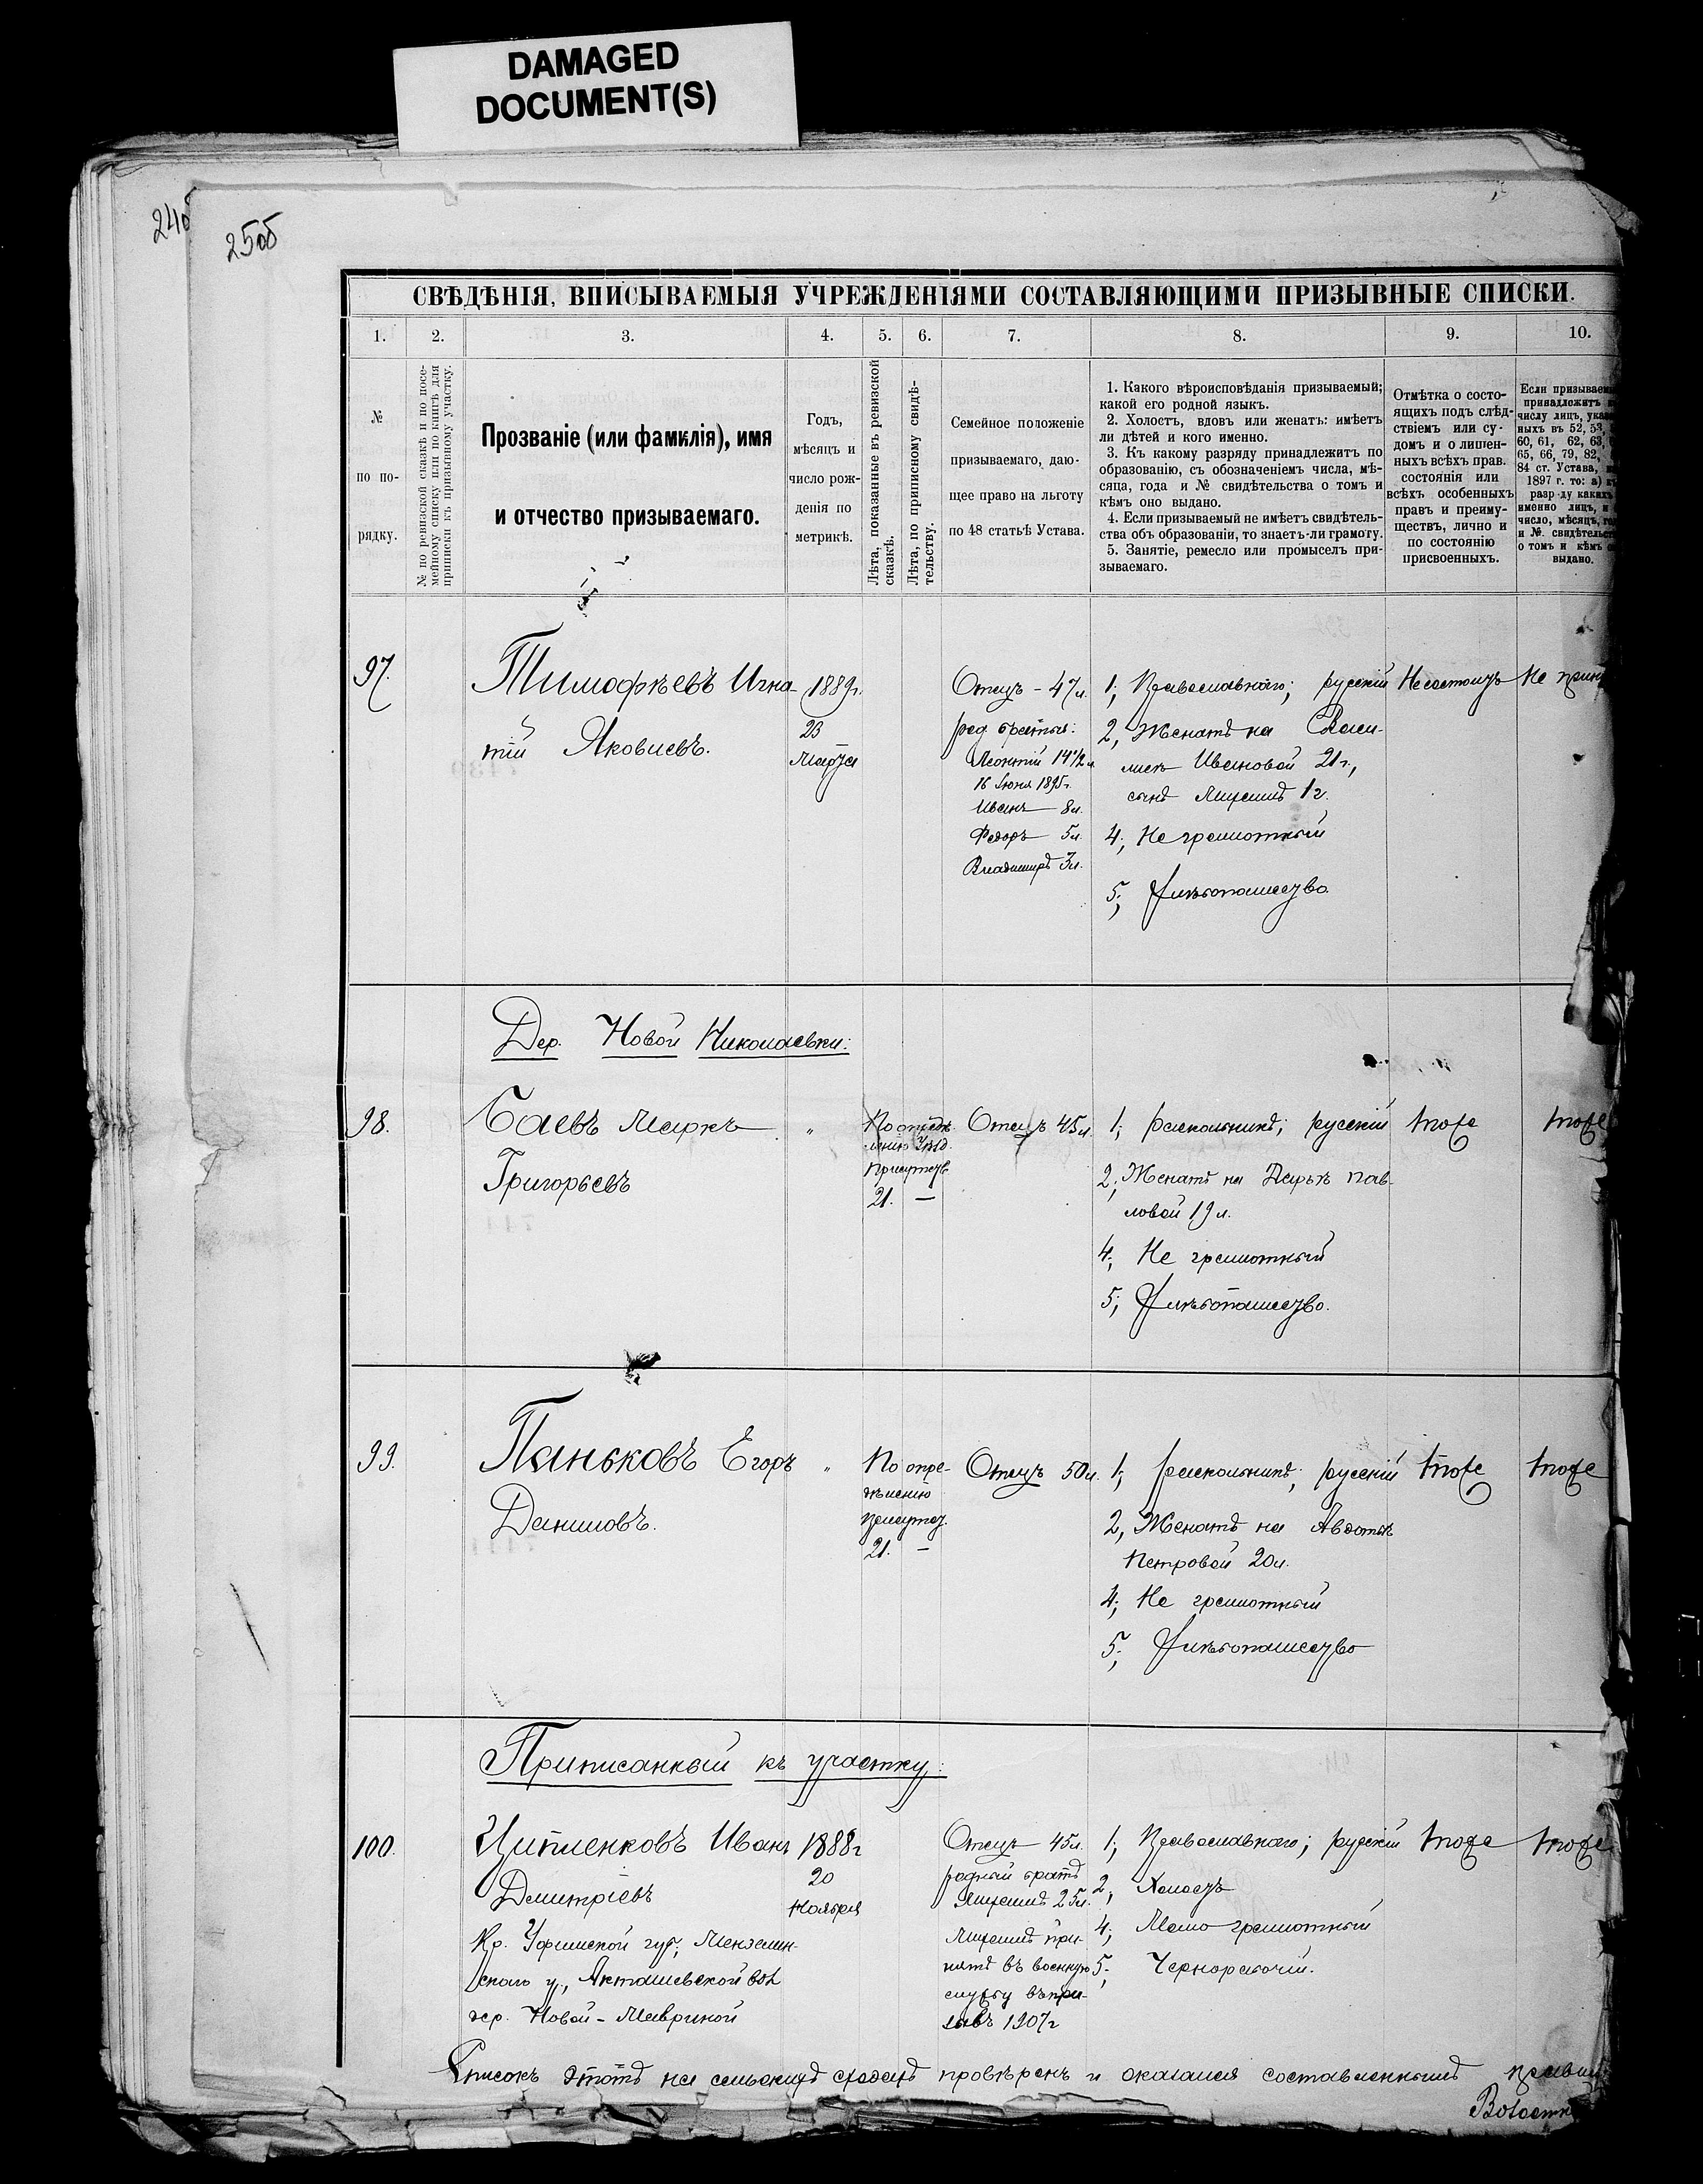 DAMAGED
DOCUMENT(S)
240б
25об
СВѢДѢНІЯ, ВПИСЫВАЕМЫЯ УЧРЕЖДЕНІЯМИ СОСТАВЛЯЮЩИМИ ПРИЗЫВНЫЕ СПИСКИ.
1. 2. 3. 4. 5. 6. 7. 8. 9. 10.
№
по по-
рядку.
№ по ревизской сказкѣ и по посе-
мейному списку или по книгѣ для
приписки къ призывному участку.
Прозваніе (или фамилія), имя
и отчество призываемаго.
Годъ,
мѣсяцъ и
число рож-
денія по
метрикѣ.
Лѣта, показанные въ ревизской
сказкѣ.
Лѣта, по приписному свидѣ-
тельству.
Семейное положеніе
призываемаго, даю-
щее право на льготу
по 48 статьѣ Устава.
1. Какого вѣроисповѣданія призываемый;
какой его родной языкъ.
2. Холостъ, вдовъ или женатъ: имѣетъ
ли дѣтей и кого именно.
3. Къ какому разряду принадлежитъ по
образованію, съ обозначеніемъ числа, мѣ-
сяца, года и № свидѣтельства о томъ и
кѣмъ оно выдано.
4. Если призываемый не имѣетъ свидѣтель-
ства объ образованіи, то знаетъ-ли грамоту.
5. Занятіе, ремесло или промыселъ при-
зываемаго.
Отмѣтка о состо-
ящихъ подъ слѣд-
ствіемъ или су-
домъ и о лишен-
ныхъ всѣхъ прав.
состоянія или
всѣхъ особенныхъ
правъ и преиму-
ществъ, лично и
по состоянію
присвоенныхъ.
Если призываем
принадлежитъ
числу лицъ, ука
ныхъ въ 52, 53,
60, 61, 62, 63,
65, 66, 79, 82,
84 ст. Устава,
1897 г. то: а)
разр ду какихъ
именно лицъ, и
число, мѣсяцъ,
и №. свидѣтельст
о томъ и кѣмъ
выдано.
97.
Тимофѣевъ Игна-
тій Яковлевъ.
1889г.
23
Марта
Отецъ - 47л.
род братья:
Леонтій 14½ л
16 Іюня 1895г.
Иванъ 8л.
Федоръ 5л.
Владиміръ 3л.
1; Православнаго; русскій
2, Женатъ на Васи-
лисѣ Ивановой 21г.,
сынъ Михаилъ 1г.
4; Не грамотный
5; Хлѣбопашество
Не состоитъ
Не прин
Дер. Новой Николаевки:
98.
Баевъ Маркъ
Григорьевъ
"
По опредѣ-
ленію Уѣзд.
Присутств
21. —
Отецъ 45л.
1; раскольникъ; русскій
2; Женатъ на Дарьѣ Пав-
ловой 19л.
4; Не грамотный
5; Хлѣбопашество.
тоже
тоже
99.
Паньковъ Егоръ
Даниловъ.
"
По опре-
дѣленію
присутст.
21. —
Отецъ 50л.
1; раскольникъ; русскій
2, Женатъ на Авдотьѣ
Петровой 20л.
4; Не грамотный
5; Хлѣбопашество
тоже
тоже
Приписанный къ участку:
100.
Ципленковъ Иванъ
Дмитріевъ
Кр. Уфимской губ; Мензелин-
скаго у., Акташевской вол
дер. Новой-Мавриной
1888г
20
Ноября
Отецъ 45л.
родный братъ
Михаилъ 25л.
Михаилъ при-
нятъ въ военную
службу въ при-
зывъ 1907г
1; Православнаго; русскій
2, Холостъ
4; Мало грамотный
5; Чернорабочій.
тоже
тоже
Списокъ этотъ на сельскихъ сходахъ провѣренъ и оказался составленнымъ